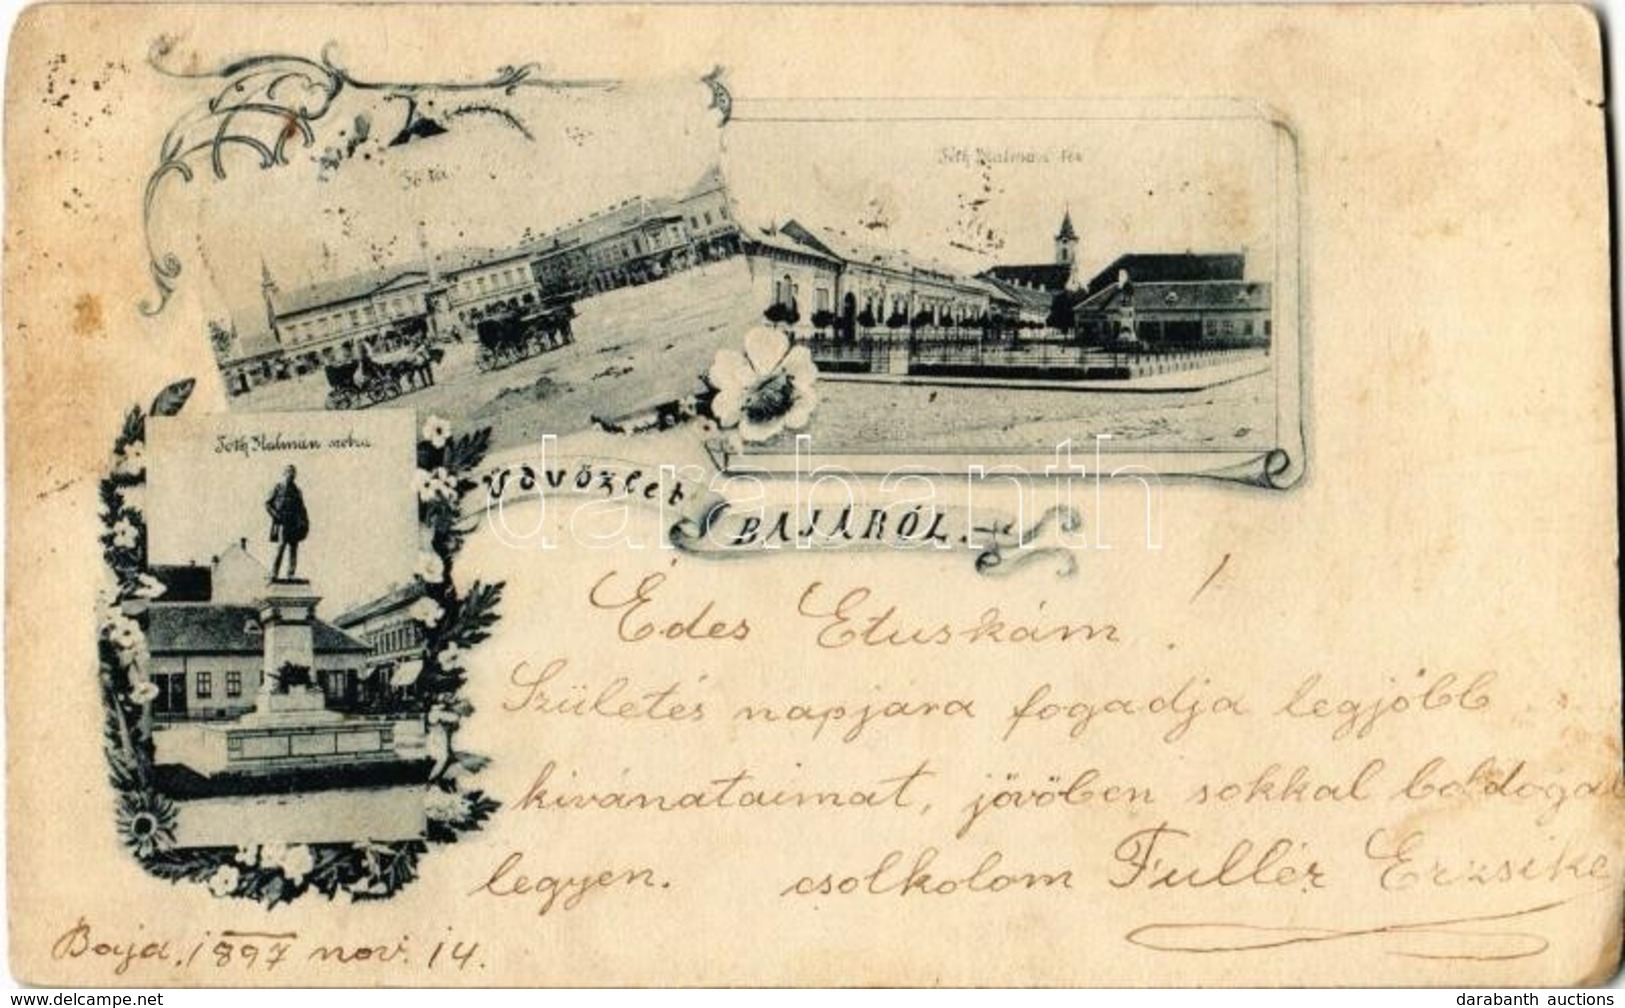 Fő tér
Tóth Kálmán tér
Tóth Kálmán szobra
ÜDVÖZLET
BAJÁRÓL.
darabanth
Édes Etuskám!
Születés napjára fogadja legjobb
kivánataimat, jövöben sokkal boldogab
legyen. csolkolom Fullér Erzsike
Baja. 1897 nov. 14.
www.darabanth.com
darabanth auctions